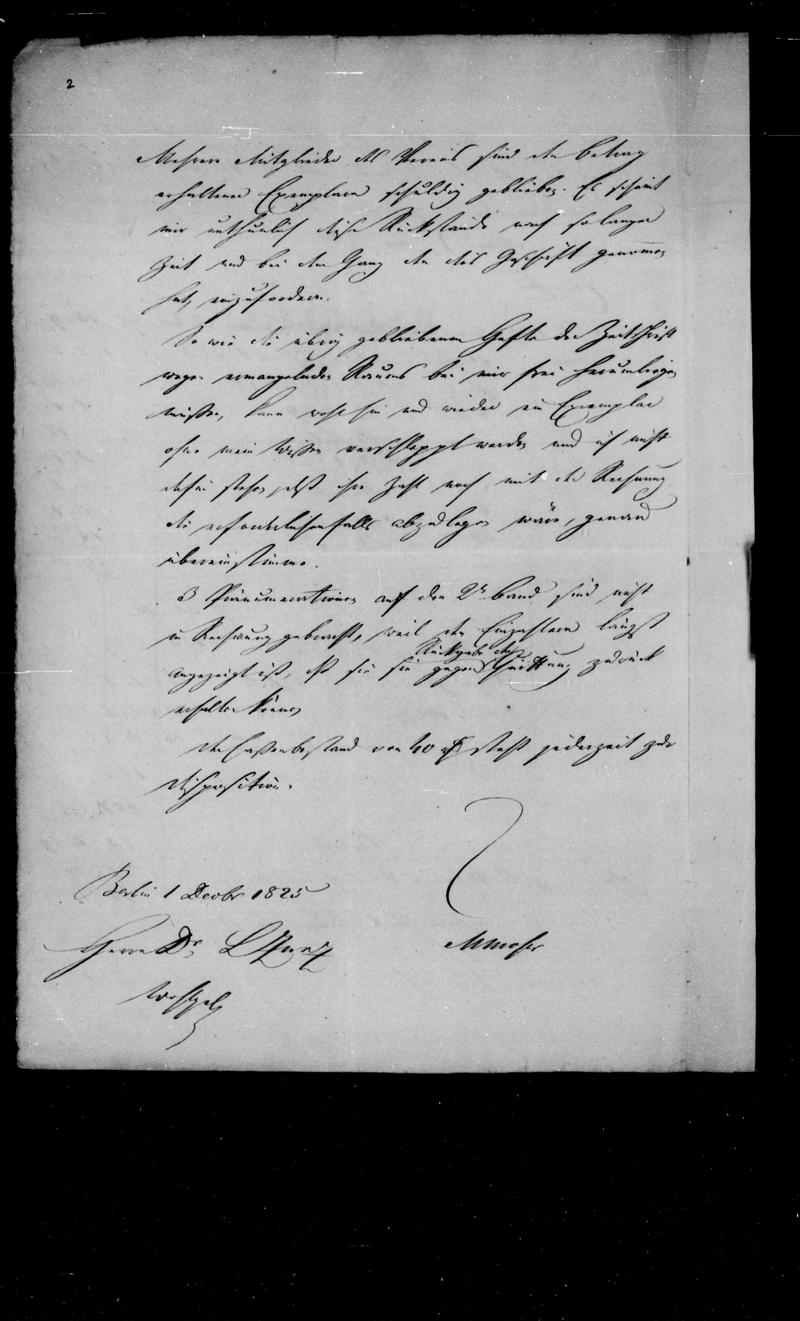 2
Mehrere Mitglieder des Vereins sind den Betrag
erhaltener Exemplare schuldig geblieben. Es scheint
mir unthunlich diese Rückstände nach so langer
Zeit und bei dem Gang den das Geschäft genommen
hat, einzufordern.
So wie die übrig gebliebenen Hefte der Zeitschrift
wegen ermangelnden Raums bei mir frei herumliegen
müssen, kann wohl hin und wieder ein Exemplar
ohne mein Wissen verschleppt werden und ich nicht
dafür stehen, daß ihre Zahl noch mit der Rechnung
die erforderlichenfalls abzulegen wäre, genau
übereinstimme.
3 Pränumerationen auf den 2n Band sind nicht
in Rechnung gebracht, weil den Einzahlern längst
angezeigt ist, daß sie sie gegen Rückgabe der Quittung zurück
erhalten können
Der Cassenbestand von 40 rℓ steht jederzeit zur
Disposition.
Berlin 1 Decbr 1825
MMoser
Herrn Dr. L Zunz